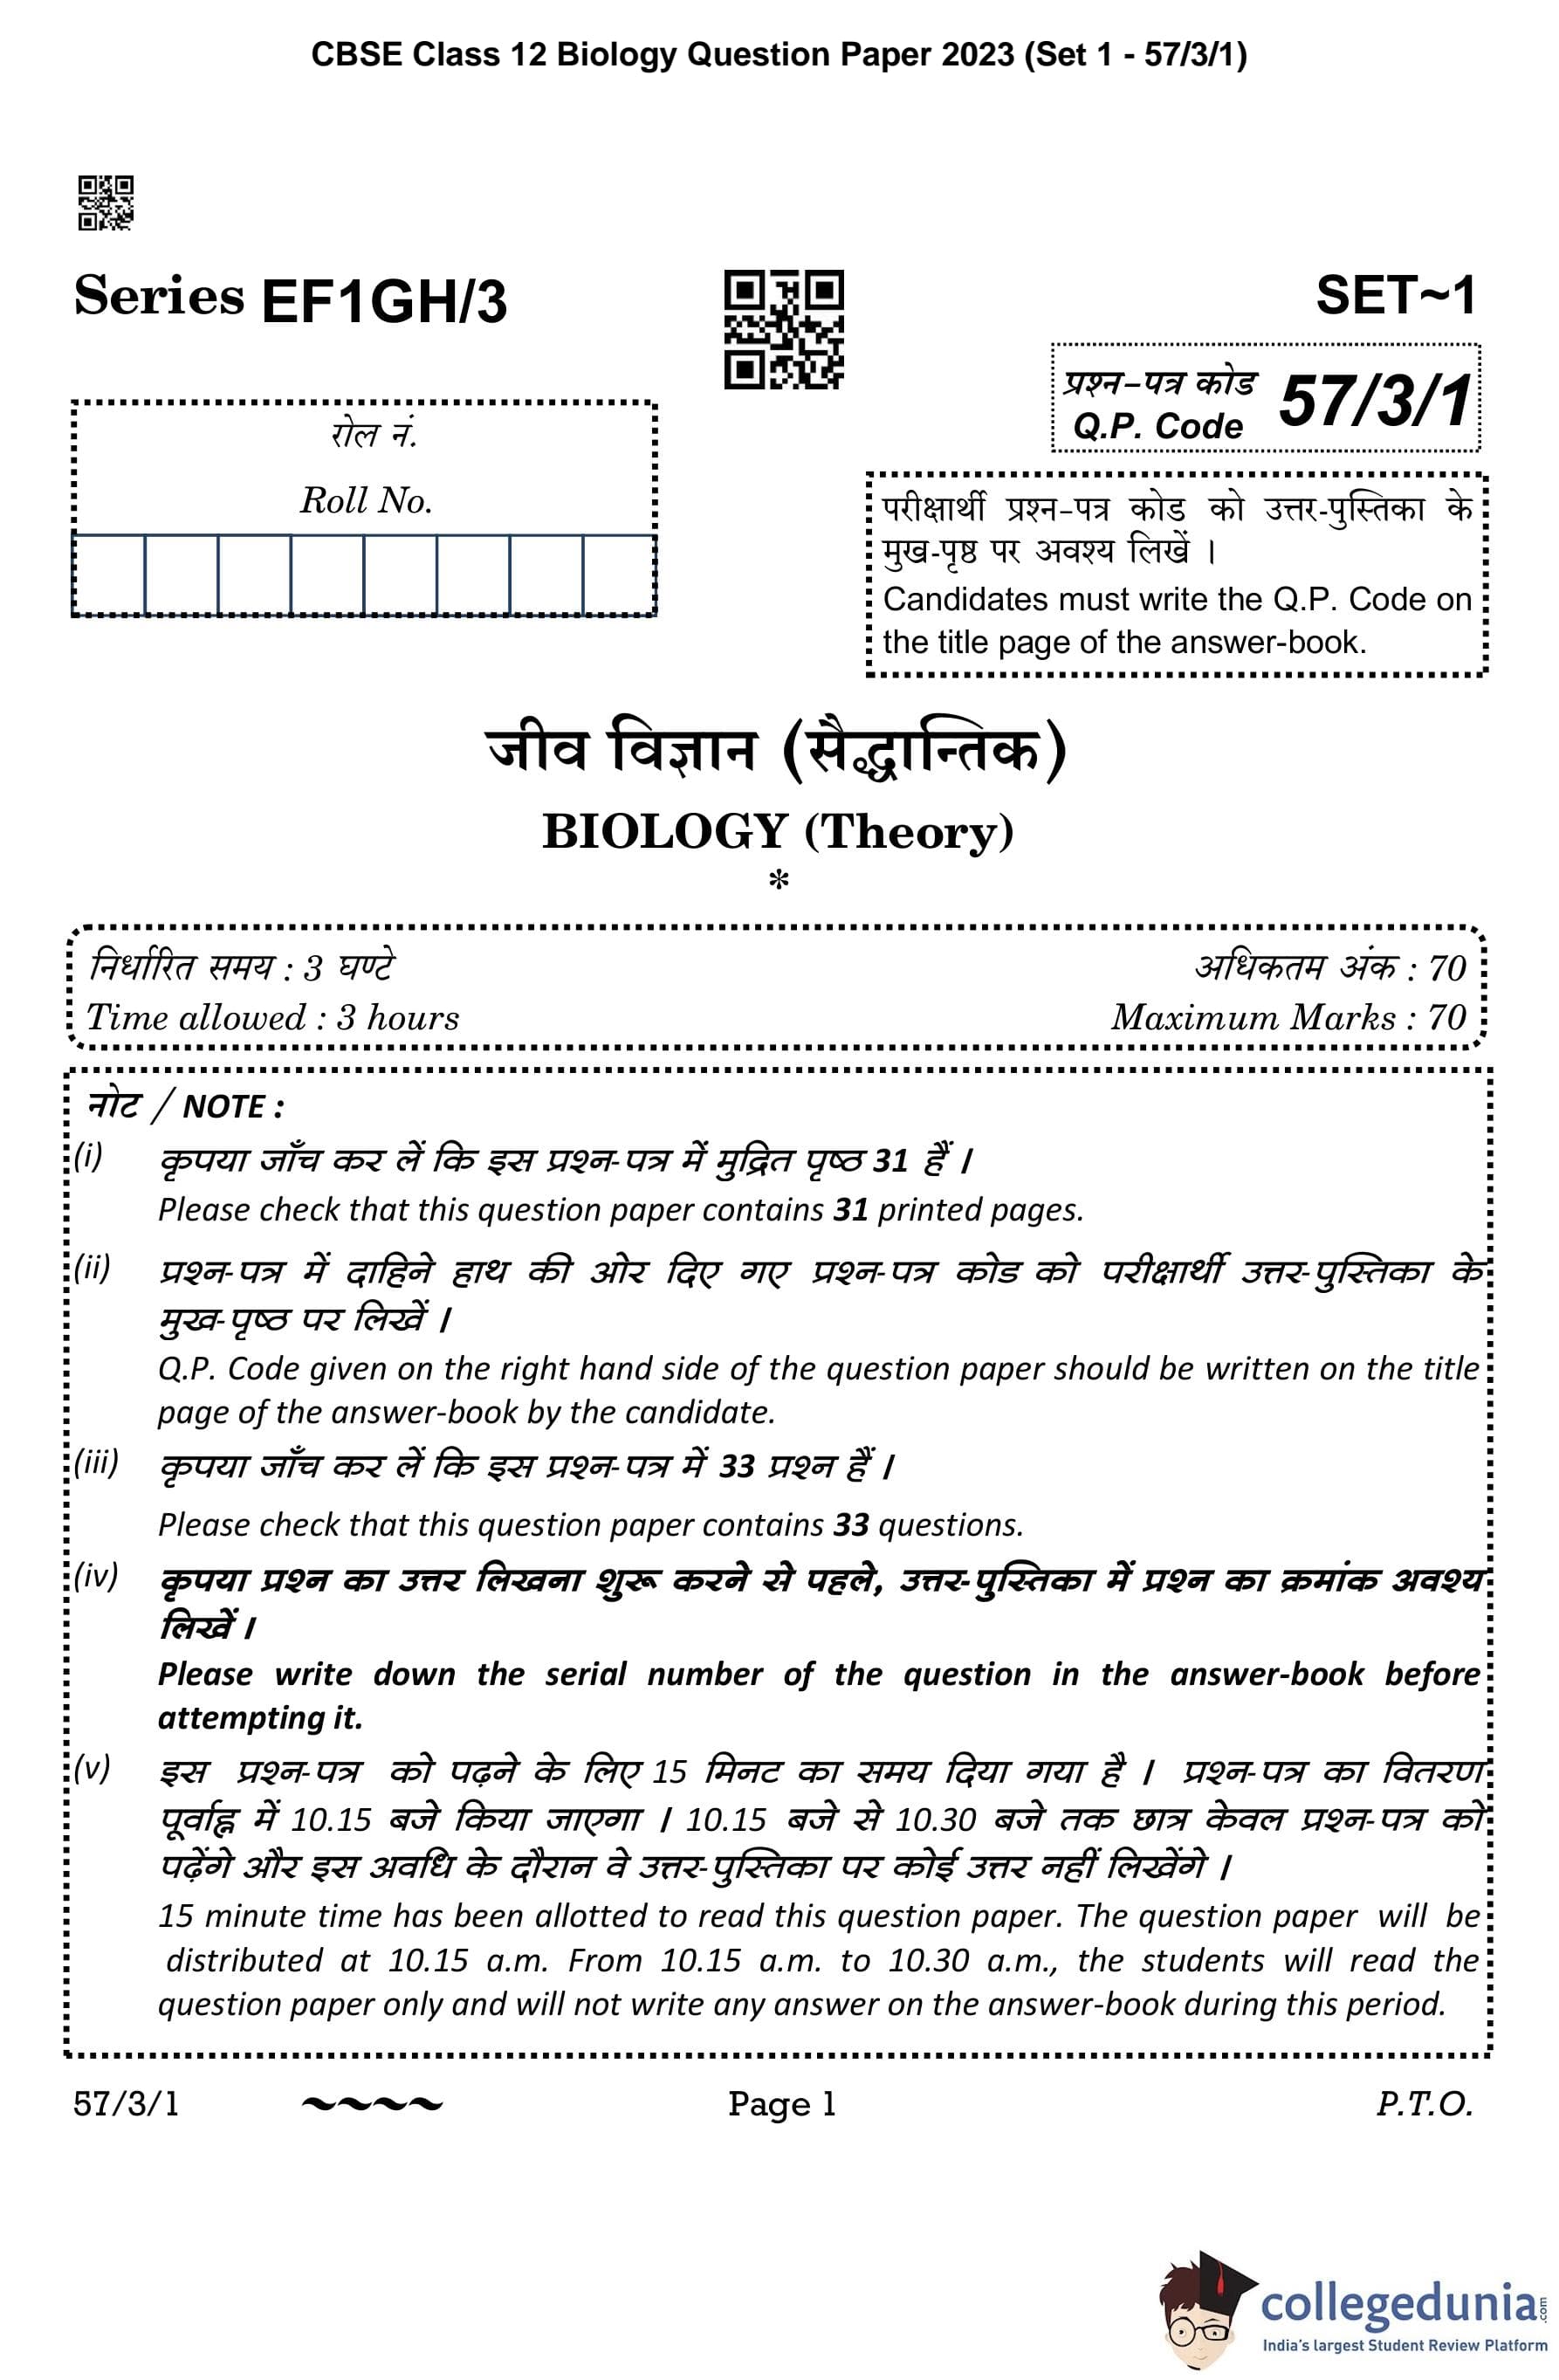 CBSE Class 12 Biology Question Paper 2023 (Set 1 - 57/3/1)
Series EF1GH/3
SET~1
प्रश्न-पत्र कोड
Q.P. Code 57/3/1
रोल नं.
Roll No.
परीक्षार्थी प्रश्न-पत्र कोड को उत्तर-पुस्तिका के
मुख-पृष्ठ पर अवश्य लिखें ।
Candidates must write the Q.P. Code on
the title page of the answer-book.
जीव विज्ञान (सैद्धान्तिक)
BIOLOGY (Theory)
*
निर्धारित समय : 3 घण्टे
अधिकतम अंक : 70
Time allowed : 3 hours
Maximum Marks : 70
नोट / NOTE :
(i) कृपया जाँच कर लें कि इस प्रश्न-पत्र में मुद्रित पृष्ठ 31 हैं ।
Please check that this question paper contains 31 printed pages.
(ii) प्रश्न-पत्र में दाहिने हाथ की ओर दिए गए प्रश्न-पत्र कोड को परीक्षार्थी उत्तर-पुस्तिका के
मुख-पृष्ठ पर लिखें ।
Q.P. Code given on the right hand side of the question paper should be written on the title
page of the answer-book by the candidate.
(iii) कृपया जाँच कर लें कि इस प्रश्न-पत्र में 33 प्रश्न हैं ।
Please check that this question paper contains 33 questions.
(iv) कृपया प्रश्न का उत्तर लिखना शुरू करने से पहले, उत्तर-पुस्तिका में प्रश्न का क्रमांक अवश्य
लिखें ।
Please write down the serial number of the question in the answer-book before
attempting it.
(v) इस प्रश्न-पत्र को पढ़ने के लिए 15 मिनट का समय दिया गया है । प्रश्न-पत्र का वितरण
पूर्वाह्न में 10.15 बजे किया जाएगा । 10.15 बजे से 10.30 बजे तक छात्र केवल प्रश्न-पत्र को
पढ़ेंगे और इस अवधि के दौरान वे उत्तर-पुस्तिका पर कोई उत्तर नहीं लिखेंगे ।
15 minute time has been allotted to read this question paper. The question paper will be
distributed at 10.15 a.m. From 10.15 a.m. to 10.30 a.m., the students will read the
question paper only and will not write any answer on the answer-book during this period.
57/3/1 ~~~~ Page 1 P.T.O.
collegedunia.com
India's largest Student Review Platform